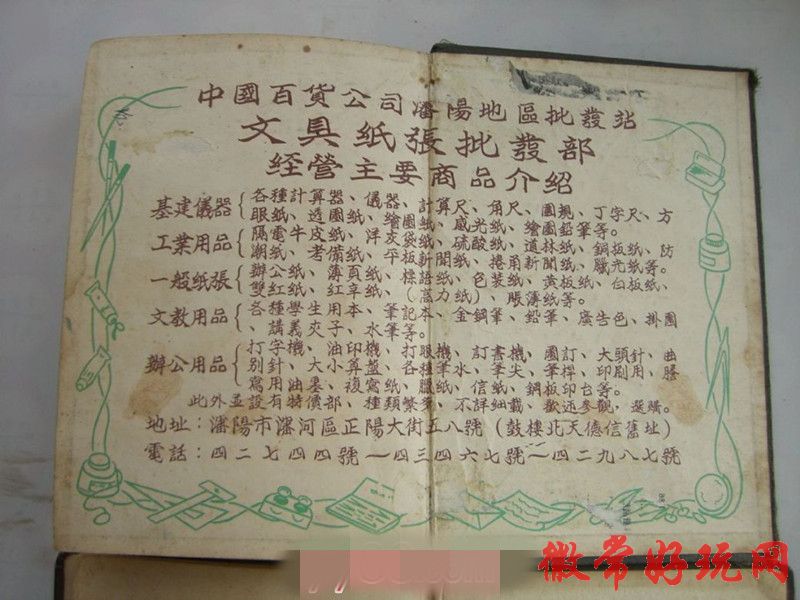 中國百貨公司瀋陽地區批發站
文具紙張批發部
經營主要商品介紹
基建儀器 各種計算器、儀器、計算尺、角尺、圓規、丁字尺、方
眼紙、透圖紙、繪圖紙、感光紙、繪圖鉛筆等。
工業用品 隔電牛皮紙、洋灰袋紙、硫酸紙、道林紙、鋼板紙、防
潮紙、考備紙、平板新聞紙、捲甬新聞紙、臘光紙等。
一般紙張 辦公紙、薄頁紙、標語紙、包裝紙、黃板紙、白板紙、
雙紅紙、紅辛紙、(高力紙)、賬薄紙等。
文教用品 各種學生用本、筆記本、金鋼筆、鉛筆、廣告色、掛圖
、講義夾子、水筆等。
辦公用品 打字機、油印機、打眼機、訂書機、圖訂、大頭針、曲
別針、大小算盤、各種筆水、筆尖、筆桿、印刷用、謄
寫用油墨、複寫紙、臘紙、信紙、鋼板印台等。
此外并設有特價部、種類繁多、不詳細載、歡迎參觀,選購。
地址:瀋陽市瀋河區正陽大街五八號(鼓樓北天德信舊址)
電話:四二七四四號—四三四六七號—四二九八七號
微常好玩网